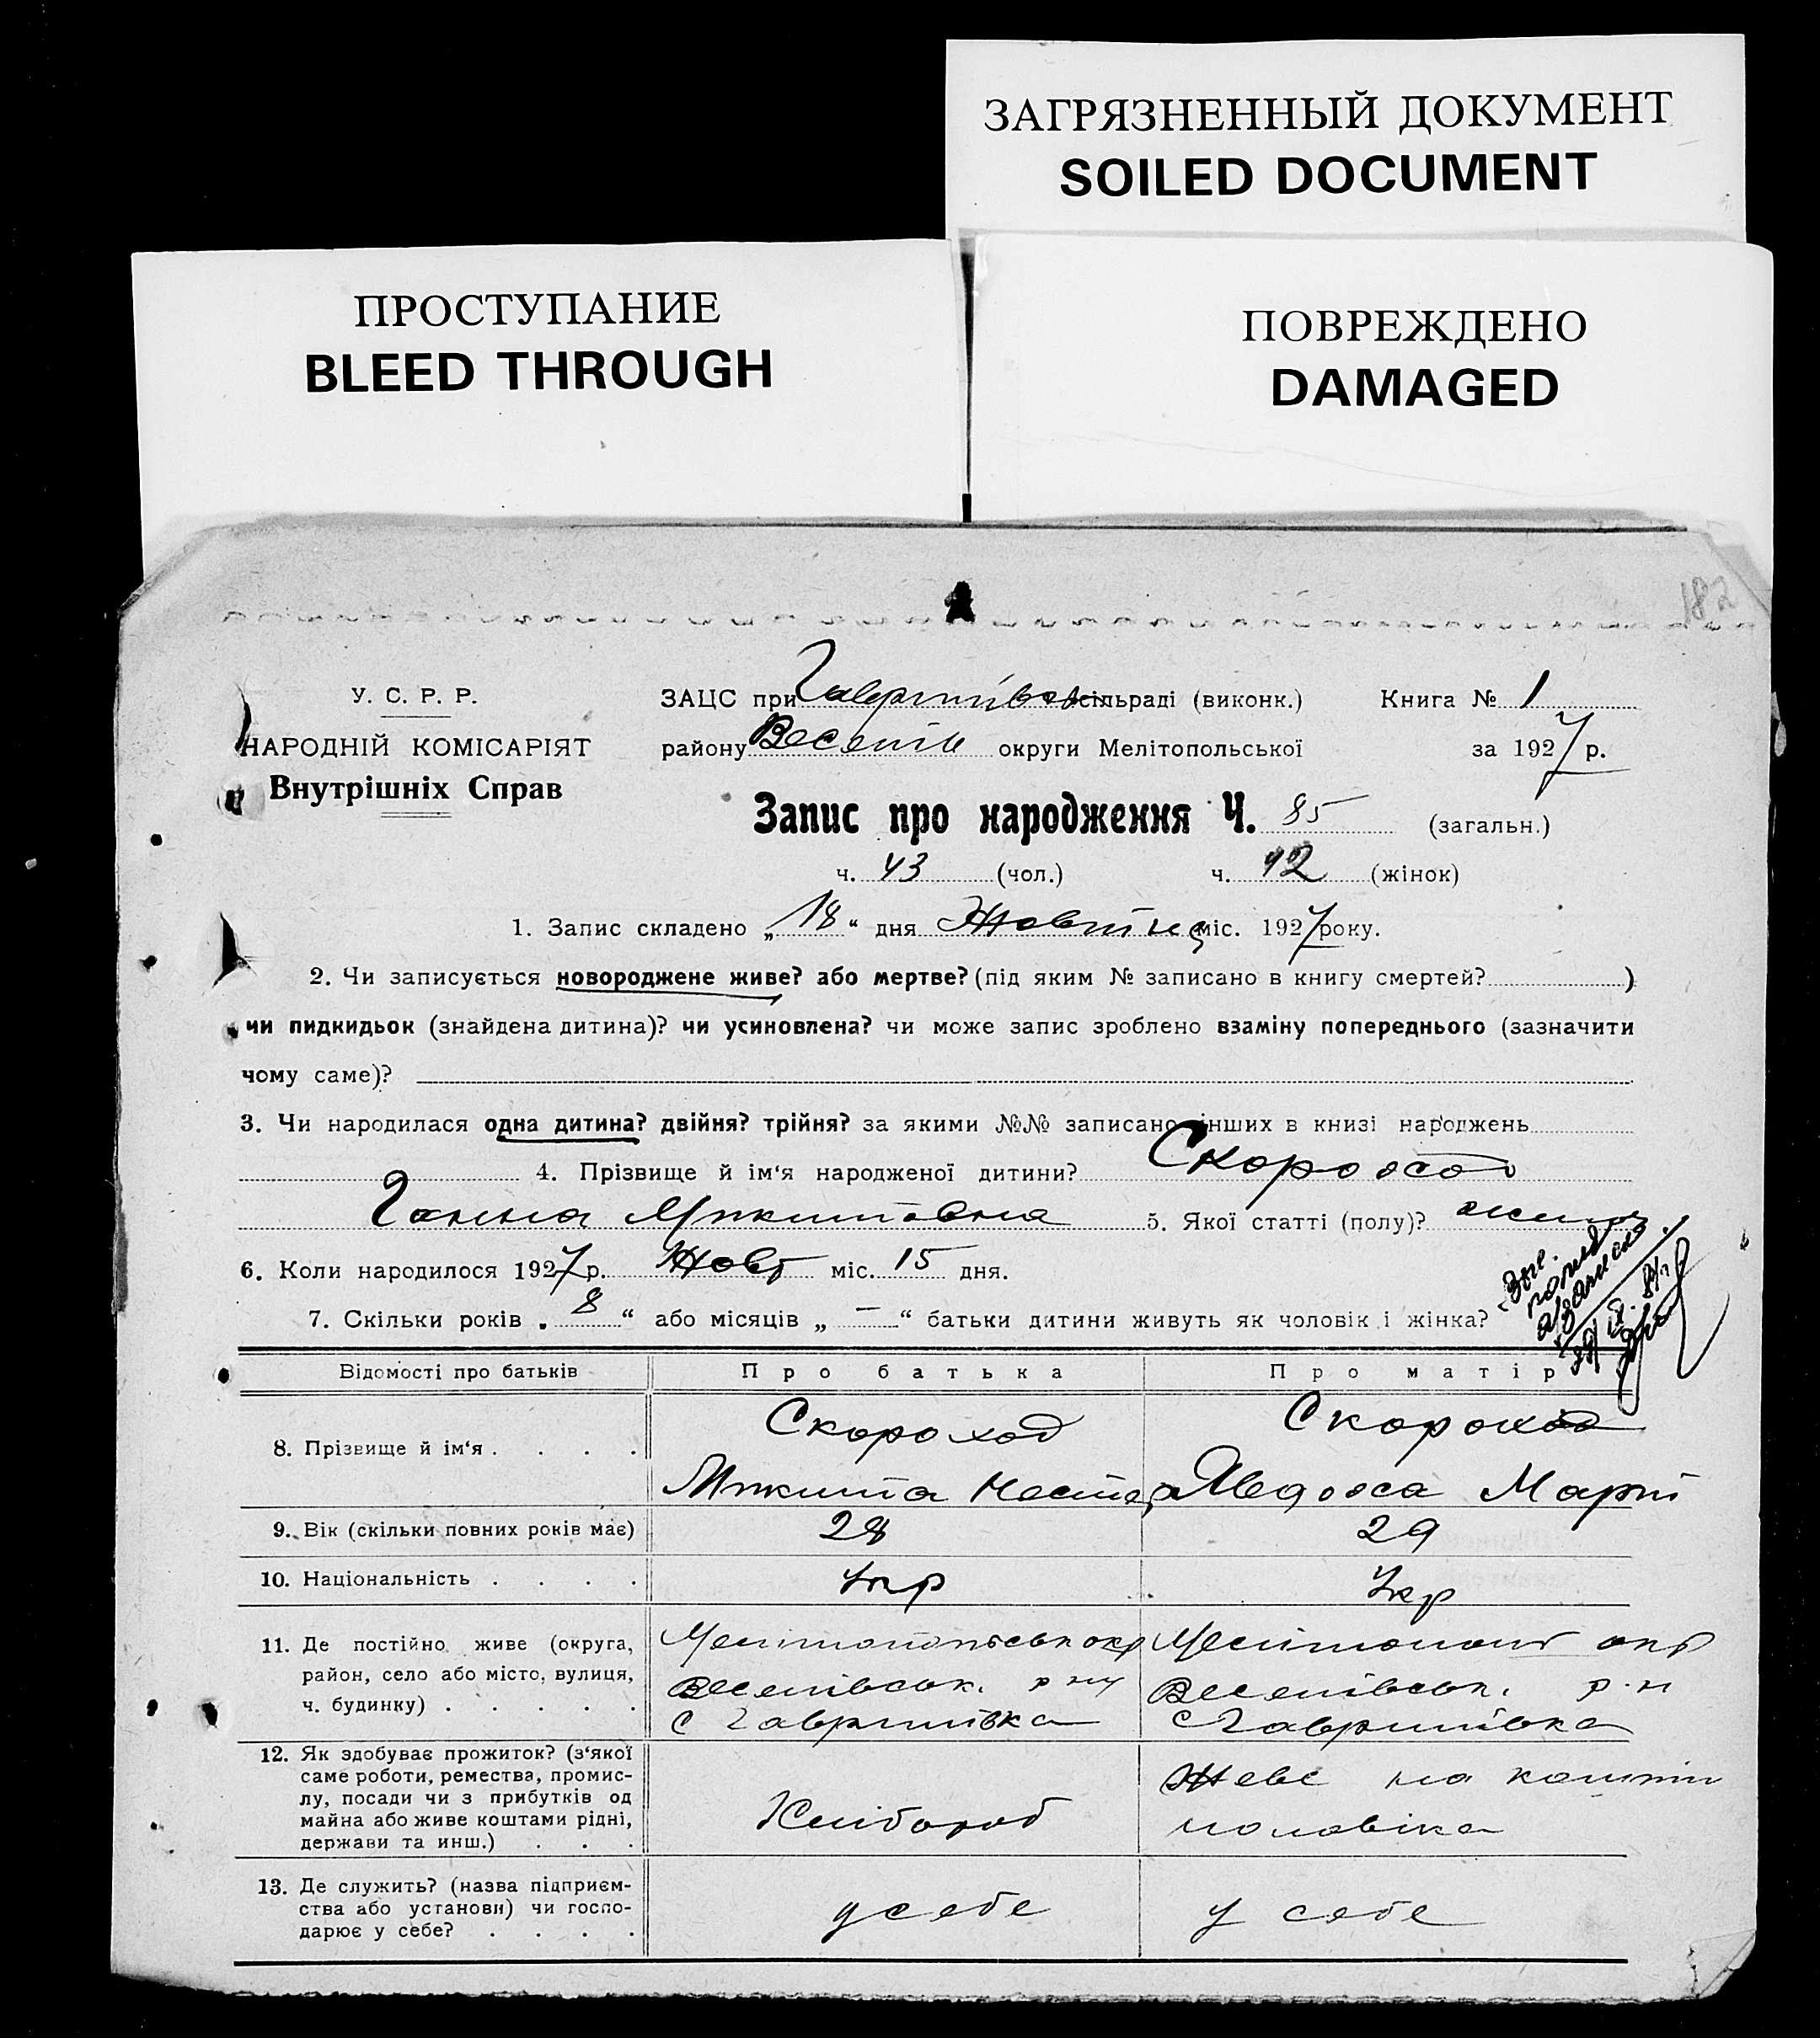 ЗАГРЯЗНЕННЫЙ ДОКУМЕНТ
SOILED DOCUMENT
ПРОСТУПАНИЕ
BLEED THROUGH
ПОВРЕЖДЕНО
DAMAGED
182
У. С. Р. Р.
НАРОДНІЙ КОМІСАРІЯТ
Внутрішніх Справ
ЗАЦС при Гаврилівск сільраді (виконк.) Книга № 1
району Веселів округи Мелітопольської за 1927 р.
Запис про народження Ч. 85 (загальн.)
ч. 43 (чол.) ч. 42 (жінок)
1. Запис складено „18“ дня Жовтня міс. 1927 року.
2. Чи записується новороджене живе? або мертве? (під яким № записано в книгу смертей? )
чи пидкидьок (знайдена дитина)? чи усиновлена? чи може запис зроблено взаміну попереднього (зазначити
чому саме)?
3. Чи народилася одна дитина? двійня? трійня? за якими №№ записано інших в книзі народжень
4. Прізвище й ім‘я народженої дитини? Скороход
Ганна Микитовна 5. Якої статті (полу)? жин
6. Коли народилося 1927 р. Жовт міс. 15 дня.
7. Скільки років „8“ або місяців „—“ батьки дитини живуть як чоловік і жінка?
Відомості про батьків Про батька Про матір
8. Прізвище й ім‘я . . . . Скороход Скороход
Микита Нестер Явдоха Март
9. Вік (скільки повних років має) 28 29
10. Національність . . . . Укр Укр
11. Де постійно живе (округа, район, село або місто, вулиця, ч. будинку) . . . . .
Мелітопольськ окр Мелітополь окр
Веселівськ. р ну Веселівськ. р-н
с Гаврилівка с Гаврилівка
12. Як здобуває прожиток? (з‘якої саме роботи, ремества, промис-
лу, посади чи з прибутків од
майна або живе коштами рідні,
держави та инш.) . . .
Хлібороб Живе на кошти
чоловіка
13. Де служить? (назва підприєм-
ства або установи) чи госпо-
дарює у себе? . . . .
у себе у себе